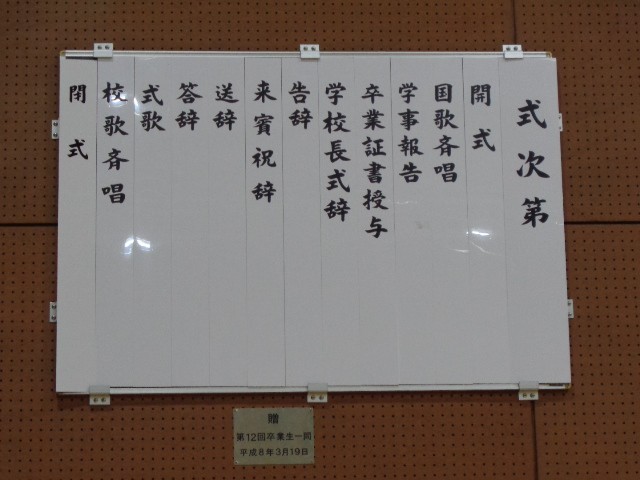 式次第
開式
国歌斉唱
学事報告
卒業証書授与
学校長式辞
告辞
来賓祝辞
送辞
答辞
式歌
校歌斉唱
閉式
贈
第12回卒業生一同
平成8年3月19日